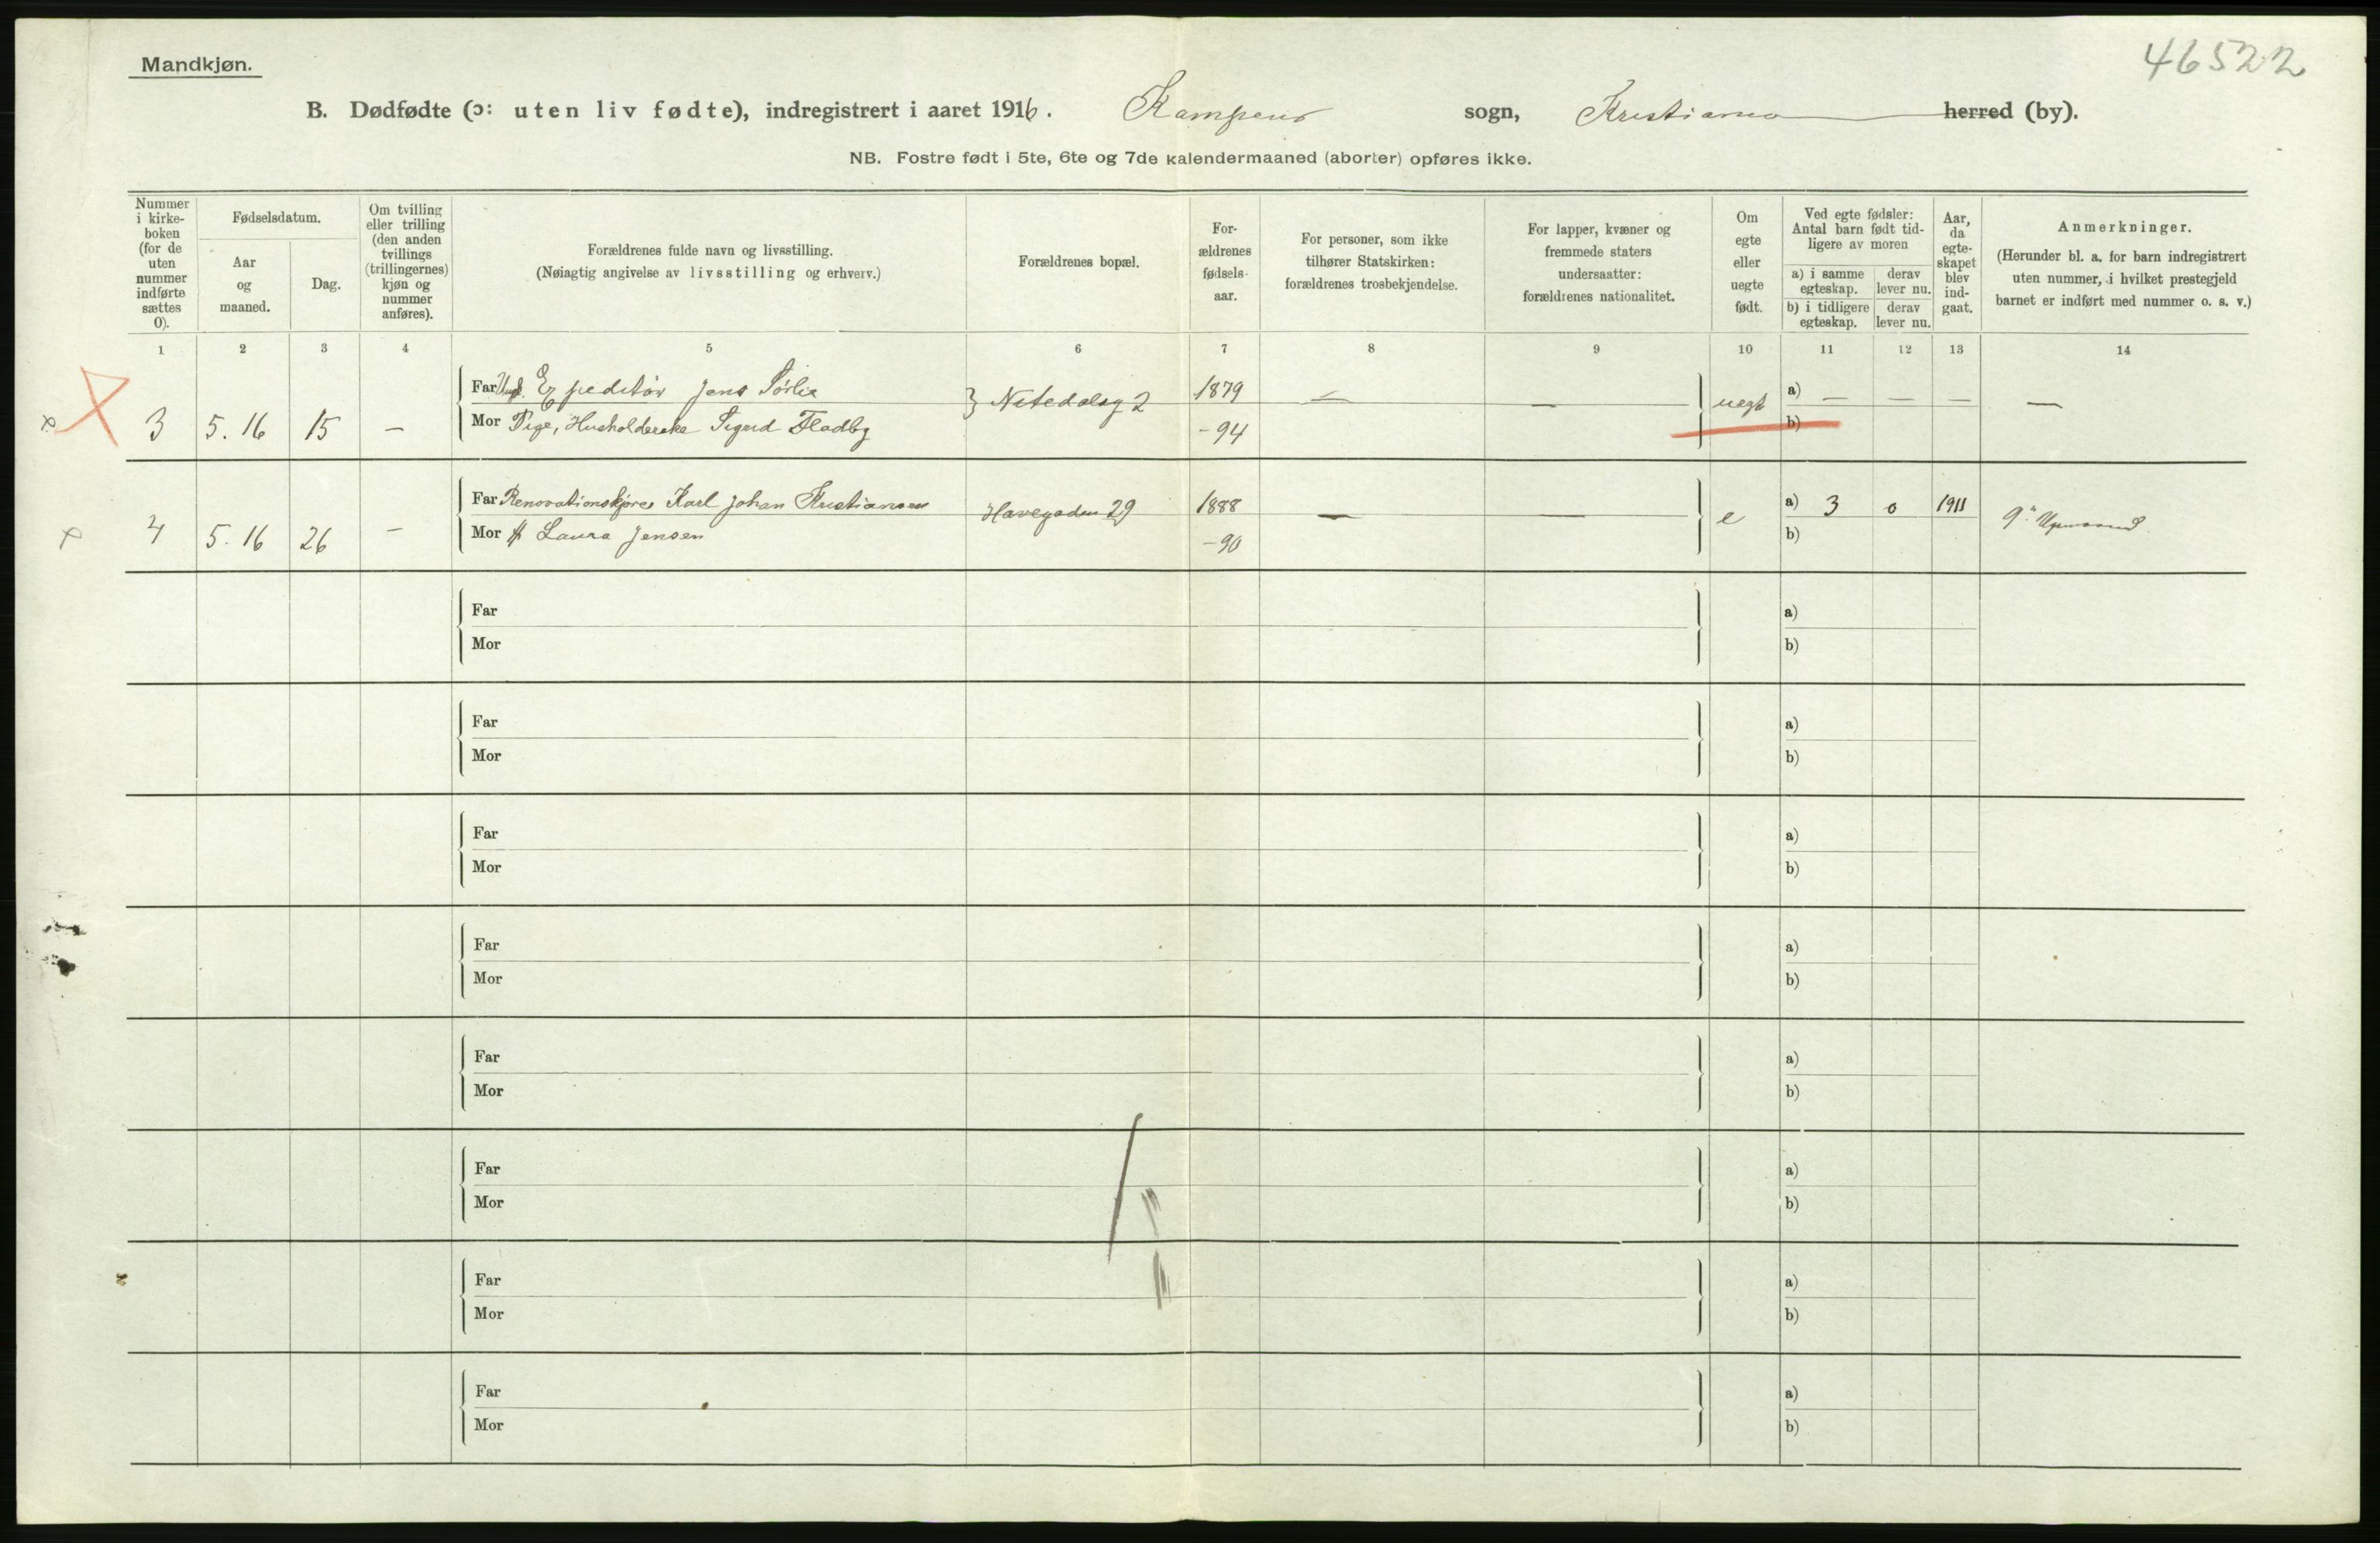 Mandkjøn.
46522
B. Dødfødte (ɔ: uten liv fødte), indregistrert i aaret 1916. Kampens sogn, Kristiania herred (by).
NB. Fostre født i 5te, 6te og 7de kalendermaaned (aborter) opføres ikke.
Nummer
i kirke-
boken
(for de
uten
nummer
indførte
sættes
0).
Fødselsdatum.
Aar
og
maaned.
Dag.
Om tvilling
eller trilling
(den anden
tvillings
(trillingernes)
kjøn og
nummer
anføres).
Forældrenes fulde navn og livsstilling.
(Nøiagtig angivelse av livsstilling og erhverv.)
Forældrenes bopæl.
For-
ældrenes
fødsels-
aar.
For personer, som ikke
tilhører Statskirken:
forældrenes trosbekjendelse.
For lapper, kvæner og
fremmede staters
undersaatter:
forældrenes nationalitet.
Om
egte
eller
uegte
født.
Ved egte fødsler:
Antal barn født tid-
ligere av moren
a) i samme
egteskap.
derav
lever nu.
b) i tidligere
egteskap.
derav
lever nu.
Aar,
da
egte-
skapet
blev
ind-
gaat.
Anmerkninger.
(Herunder bl. a. for barn indregistrert
uten nummer, i hvilket prestegjeld
barnet er indført med nummer o. s. v.)
1 2 3 4 5 6 7 8 9 10 11 12 13 14
Far Ungk. Expeditør Jens Sørlie } Nitedalsg 2 1879 — — uegt a) — — — —
3 5. 16 15 — Mor Pige, Husholderske Sigrid Fladby - 94 b)
Far Renovationskjører Karl Johan Kristiansen Havegaden 29 1888 — — e a) 3 0 1911
4 5. 16 26 — Mor Laura Jensen - 90 b) 9"
Far a)
Mor b)
Far a)
Mor b)
Far a)
Mor b)
Far a)
Mor b)
Far a)
Mor b)
Far a)
Mor b)
Far a)
Mor b)
Far a)
Mor b)